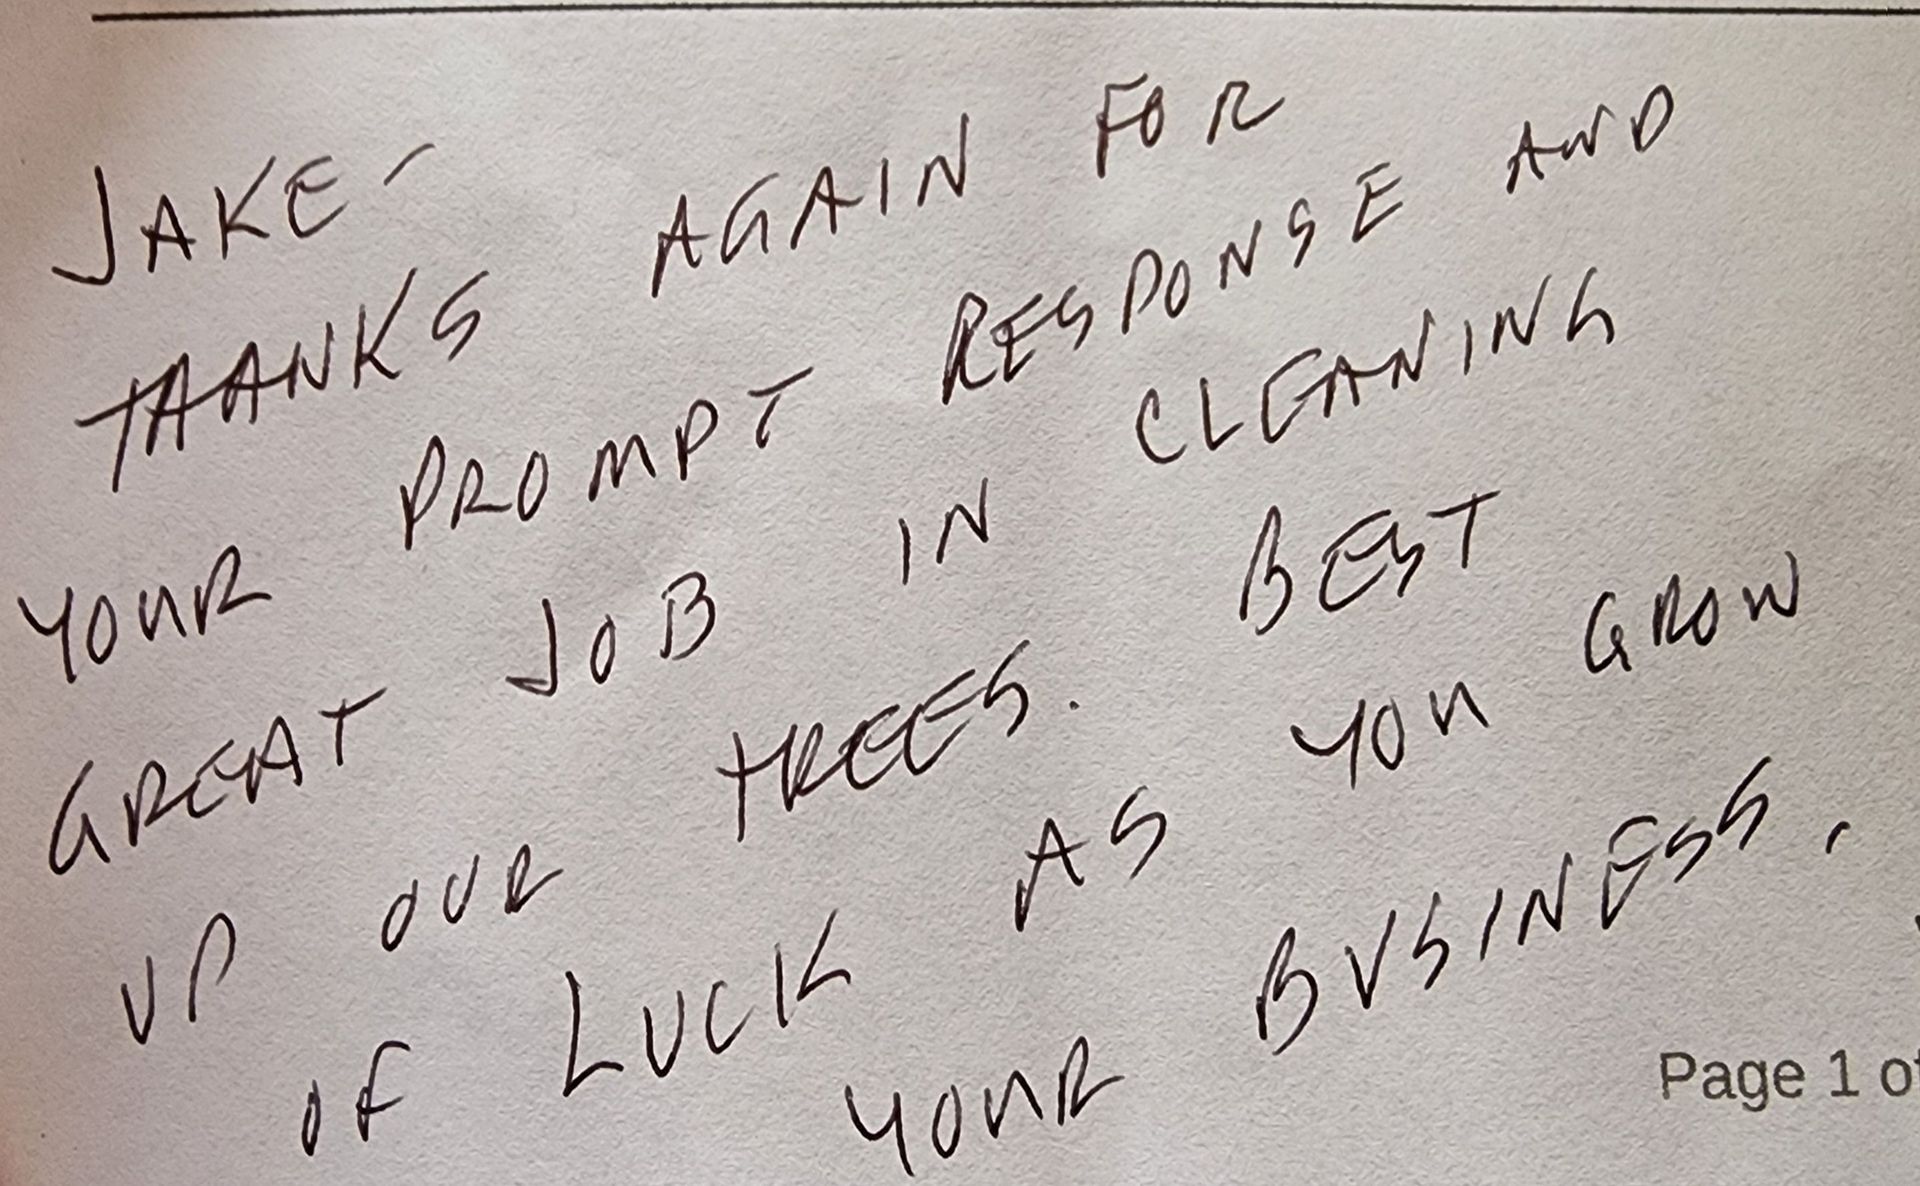 JAKE-
THANKS AGAIN FOR
YOUR PROMPT RESPONSE AND
GREAT JOB IN CLEANING
UP OUR TREES. BEST
OF LUCK AS YOU GROW
YOUR BUSINESS.
Page 1 of